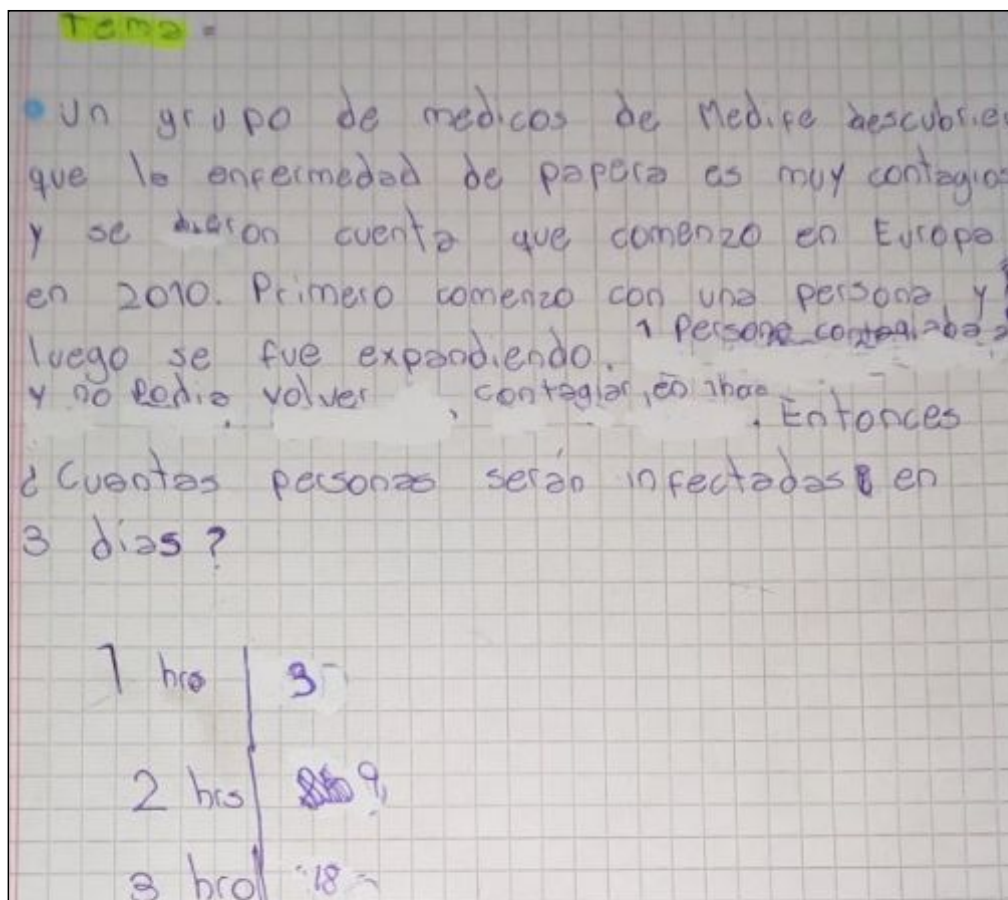 Tema =
Un grupo de medicos de Medife descubrie
que la enfermedad de papera es muy contagios
y se dieron cuenta que comenzo en Europa
en 2010. Primero comenzo con una persona, y
luego se fue expandiendo. 1 Persona contagiaba
y no Podia volver contagiar, en 1 hora. Entonces
¿Cuantas personas serán infectadas en
3 dias?
1 hrs 3
2 hrs 9
3 hro 18